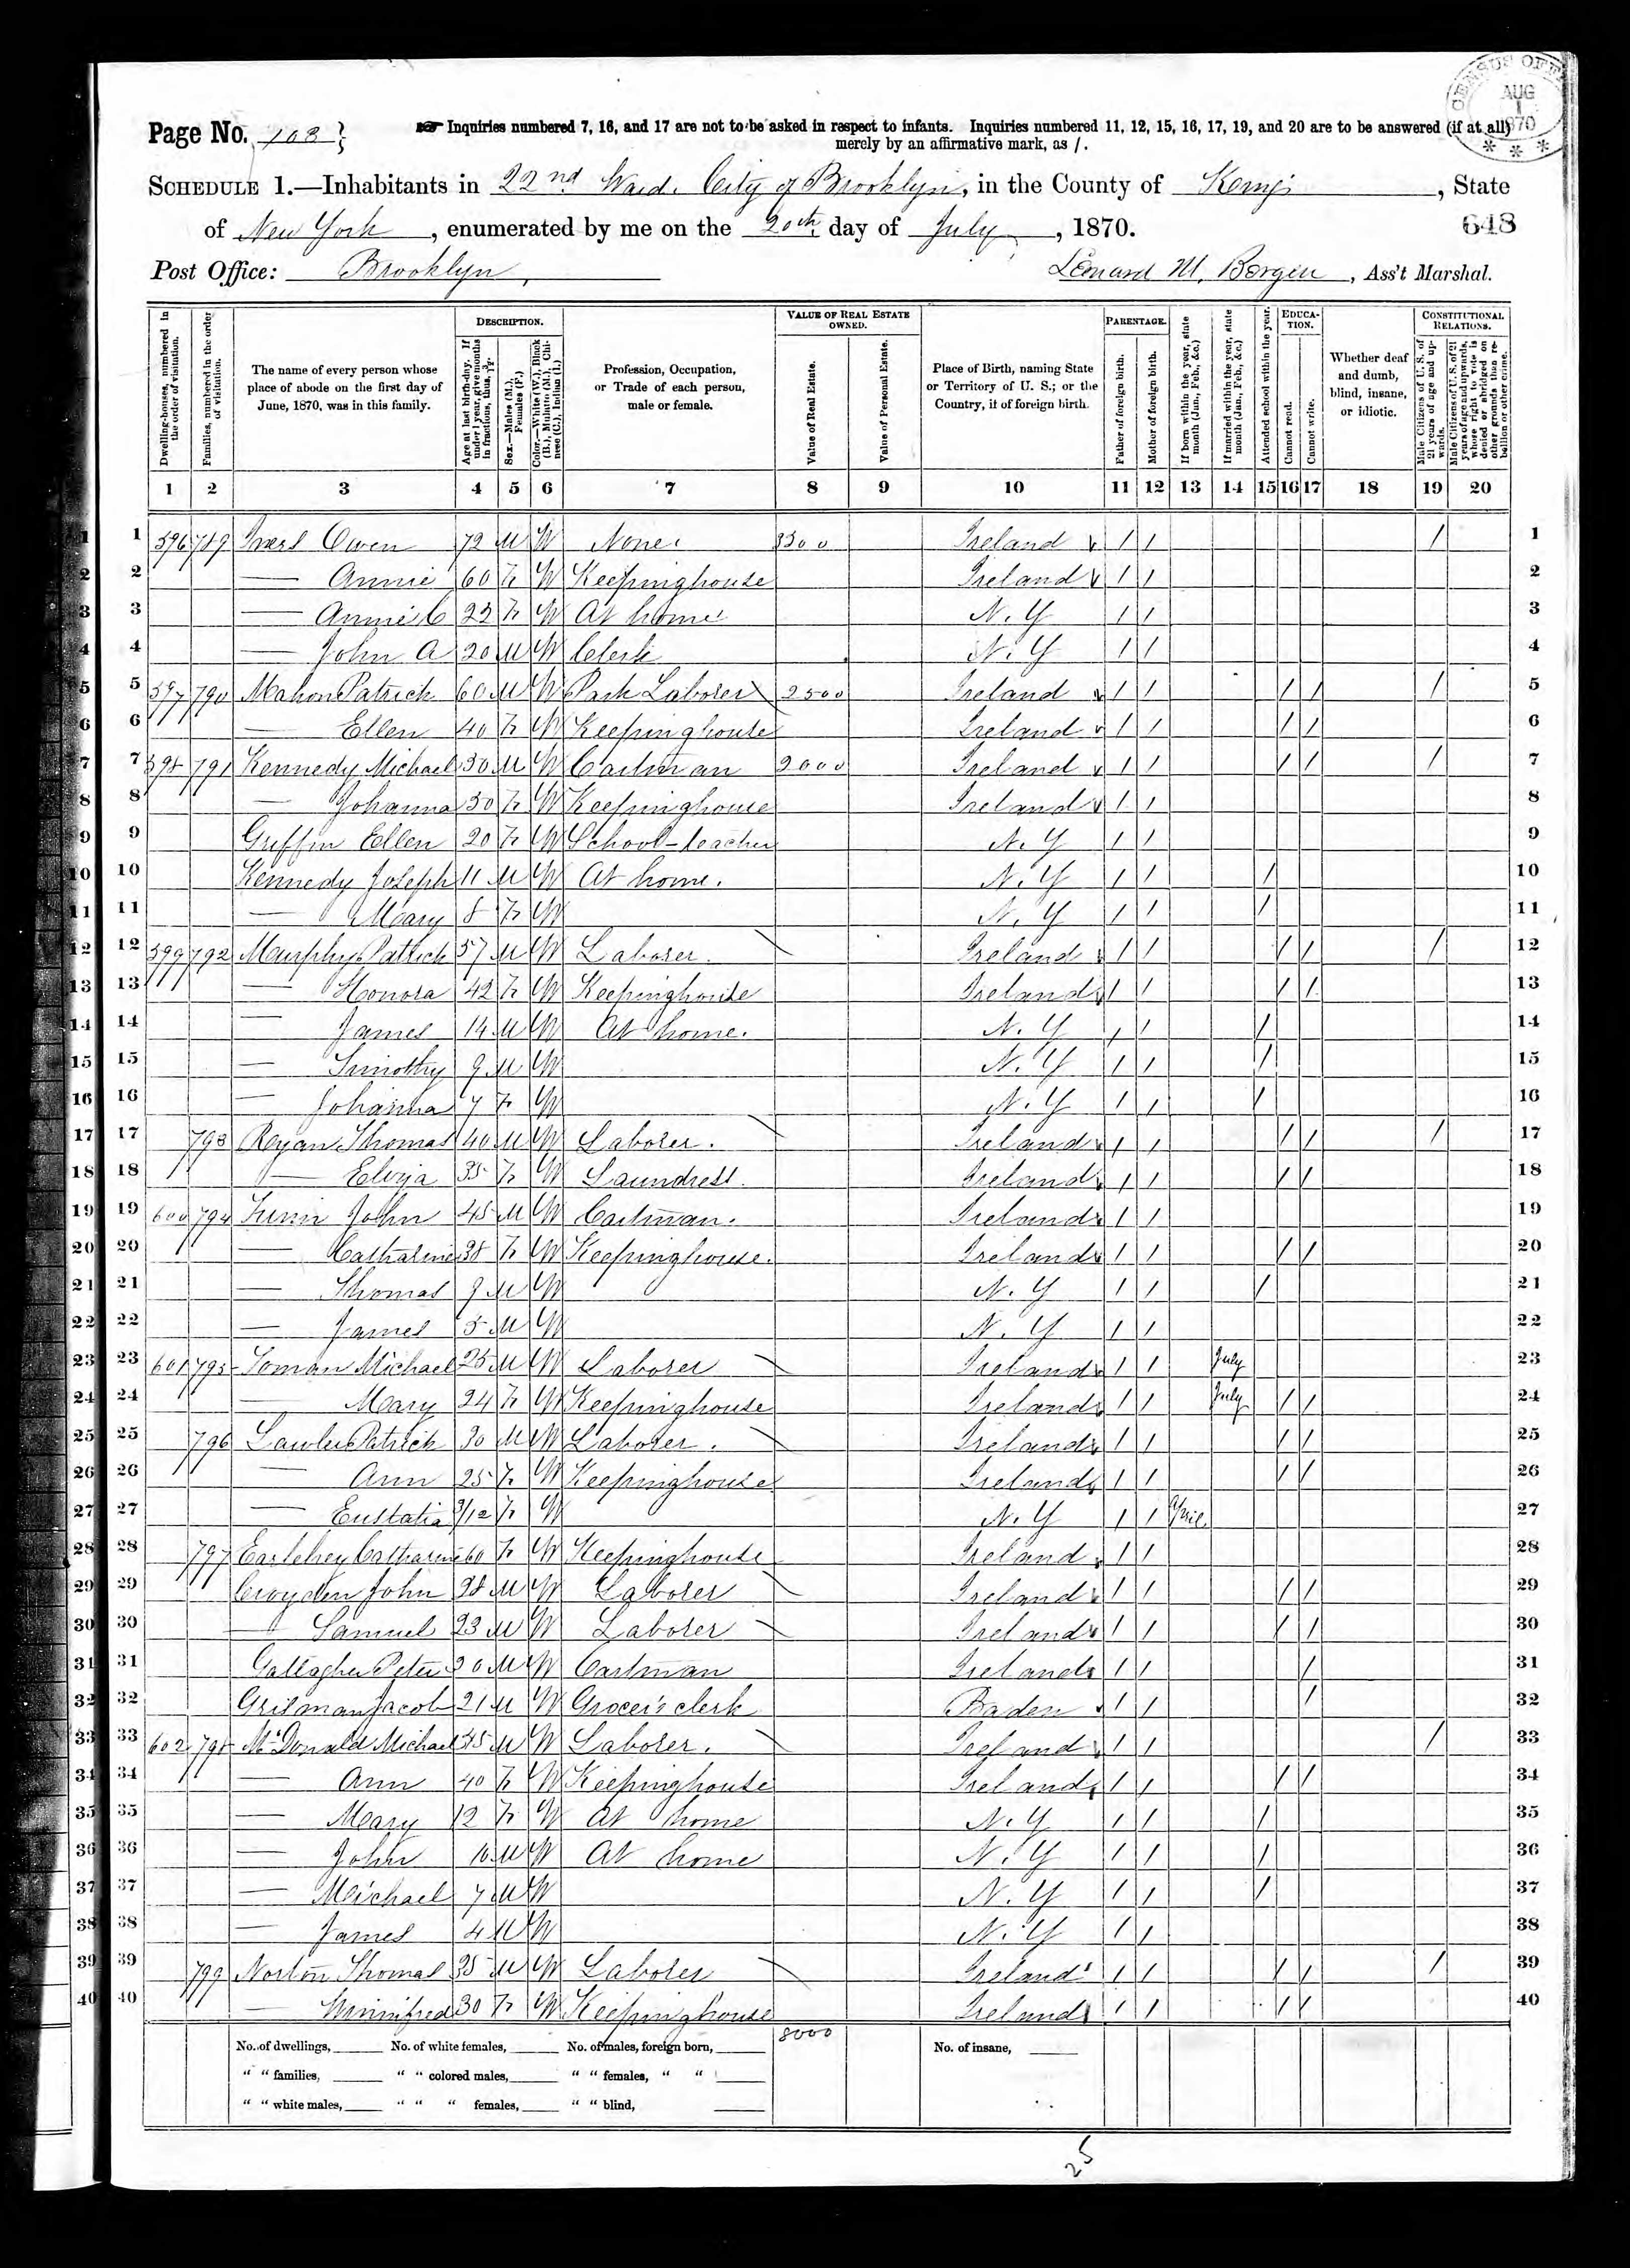 CENSUS OFF
AUG
1
1870
Page No. 103
Inquiries numbered 7, 16, and 17 are not to be asked in respect to infants. Inquiries numbered 11, 12, 15, 16, 17, 19, and 20 are to be answered (if at all)
merely by an affirmative mark, as /.
SCHEDULE 1.—Inhabitants in 22nd Ward. City of Brooklyn, in the County of Kings, State
of New York, enumerated by me on the 20th day of July, 1870.
648
Post Office: Brooklyn, Leonard M. Bergen, Ass't Marshal.
Dwelling-houses, numbered in the order of visitation.
Families, numbered in the order of visitation.
The name of every person whose place of abode on the first day of June, 1870, was in this family.
DESCRIPTION.
Age at last birth-day. If under 1 year, give months in fractions, thus, 3/12
Sex.—Males (M.), Females (F.)
Color.—White (W.), Black (B.), Mulatto (M.), Chinese (C.), Indian (I.)
Profession, Occupation, or Trade of each person, male or female.
VALUE OF REAL ESTATE OWNED.
Value of Real Estate.
Value of Personal Estate.
Place of Birth, naming State or Territory of U. S.; or the Country, if of foreign birth.
PARENTAGE.
Father of foreign birth.
Mother of foreign birth.
If born within the year, state month (Jan., Feb., &c.)
If married within the year, state month (Jan., Feb., &c.)
Attended school within the year.
EDUCATION.
Cannot read.
Cannot write.
Whether deaf and dumb, blind, insane, or idiotic.
CONSTITUTIONAL RELATIONS.
Male Citizens of U. S. of 21 years of age and upwards.
Male Citizens of U. S. of 21 years of age and upwards, whose right to vote is denied or abridged on other grounds than rebellion or other crime.
1 2 3 4 5 6 7 8 9 10 11 12 13 14 15 16 17 18 19 20
1 1 596 789 Owen 72 M W None. Ireland / / / 1
2 2 — Annie 60 F W Keepinghouse Ireland / / 2
3 3 — Annie C F W At home N. Y / / 3
4 4 — John A 20 M W Clerk N. Y / / 4
5 5 597 790 Mahon Patrick 60 M W Park Laborer 2500 Ireland / / / / / 5
6 6 — Ellen 40 F W Keepinghouse Ireland / / / / 6
7 7 598 791 Kennedy Michael 50 M W Cartman 2000 Ireland / / / / / 7
8 8 — Johanna 50 F W Keepinghouse Ireland / / 8
9 9 Griffin Ellen 20 F W School-teacher N. Y / / 9
10 10 Kennedy Joseph 11 M W At home. N. Y / / / 10
11 11 — Mary 8 F W N. Y / / / 11
12 12 599 792 Murphy Patrick 57 M W Laborer. Ireland / / / / / 12
13 13 — Honora 42 F W Keepinghouse Ireland / / / / 13
14 14 — James 14 M W At home. N. Y / / / 14
15 15 — Timothy 9 M W N. Y / / / 15
16 16 — Johanna 7 F W N. Y / / / 16
17 17 793 Ryan Thomas 40 M W Laborer. Ireland / / / / / 17
18 18 — Eliza 35 F W Laundress. Ireland / / / / 18
19 19 600 794 John 45 M W Cartman. Ireland / / 19
20 20 — Catharine 38 F W Keepinghouse. Ireland / / / / 20
21 21 — Thomas 9 M W N. Y / / / 21
22 22 — James 5 M W N. Y / / 22
23 23 601 795 Toman Michael 25 M W Laborer Ireland / / July 23
24 24 — Mary 24 F W Keepinghouse Ireland / / July / / 24
25 25 796 Lawler Patrick 30 M W Laborer. Ireland / / / / 25
26 26 — Ann 25 F W Keepinghouse Ireland / / / / 26
27 27 — Eustatia 3/12 F W N. Y / / April 27
28 28 797 Catharine 60 F W Keepinghouse Ireland / / 28
29 29 Croyden John 28 M W Laborer Ireland / / / / 29
30 30 — Samuel 23 M W Laborer Ireland / / / / 30
31 31 Gallagher Peter 30 M W Cartman Ireland / / / 31
32 32 Grisman Jacob 21 M W Grocer's clerk Baden / / / 32
33 33 602 798 McDonald Michael 45 M W Laborer. Ireland / / / 33
34 34 — Ann 40 F W Keepinghouse Ireland / / / / 34
35 35 — Mary 12 F W At home N. Y / / / 35
36 36 — John 10 M W At home N. Y / / / 36
37 37 — Michael 7 M W N. Y / / / 37
38 38 — James 4 M W N. Y / / 38
39 39 799 Norton Thomas 35 M W Laborer Ireland / / / / / 39
40 40 — Winnifred 30 F W Keepinghouse Ireland / / / / 40
8000
No. of dwellings, No. of white females, No. of males, foreign born, No. of insane,
" " families, " " colored males, " " females, " "
" " white males, " " " females, " " blind,
25